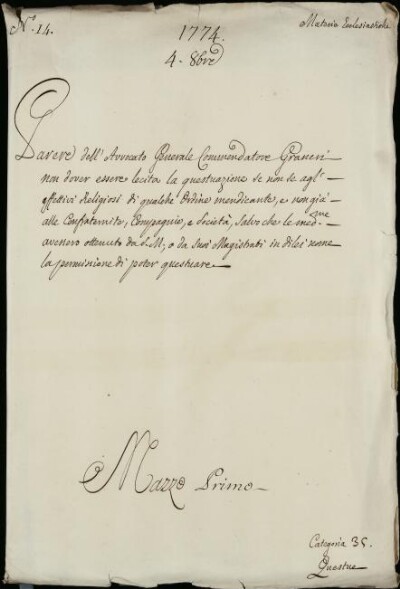 N.º 14.
1774.
Materie Ecclesiastiche
4. 8bre
Parere dell' Avvocato Generale Commendatore Graneri
non dover essere lecita la questuazione se non se agl'
effettivi Religiosi di qualche Ordine mendicante, e non già
alle Confraternite, Compagnie, e Società, salvo che le medme
avessero ottenuto da S. M., o da suoi Magistrati in di lei nome
la permissione di poter questuare
Mazzo Primo
Categoria 35.
Questue